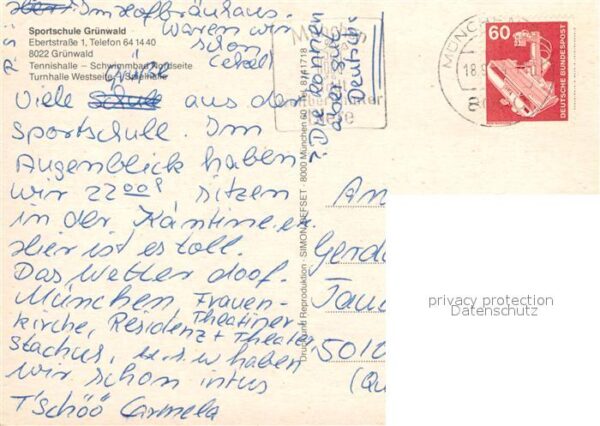 P.S. Im Hofbräuhaus.
waren wir
schon
(eklel)
? Die können
aber gut
Deutsch!
Sportschule Grünwald
Ebertstraße 1, Telefon 64 14 40
8022 Grünwald
Tennishalle – Schwimmbad Nordseite
Turnhalle Westseite – Spielhalle
Viele Grüße aus der
Sportschule. Im
Augenblick haben
wir 22 00, sitzen
in der Kantine.
Hier ist es toll.
Das Wetter doof.
München Frauen-
kirche, Residenz + Theatiner
Theater
Stachus, u.s.w haben
wir schon intus
T'schöö Carmela
Druck und Reproduktion - SIMON 8000 München 60
MÜNCHEN
18.9
60
DEUTSCHE BUNDESPOST
An
Gerda
5010
privacy protection
Datenschutz